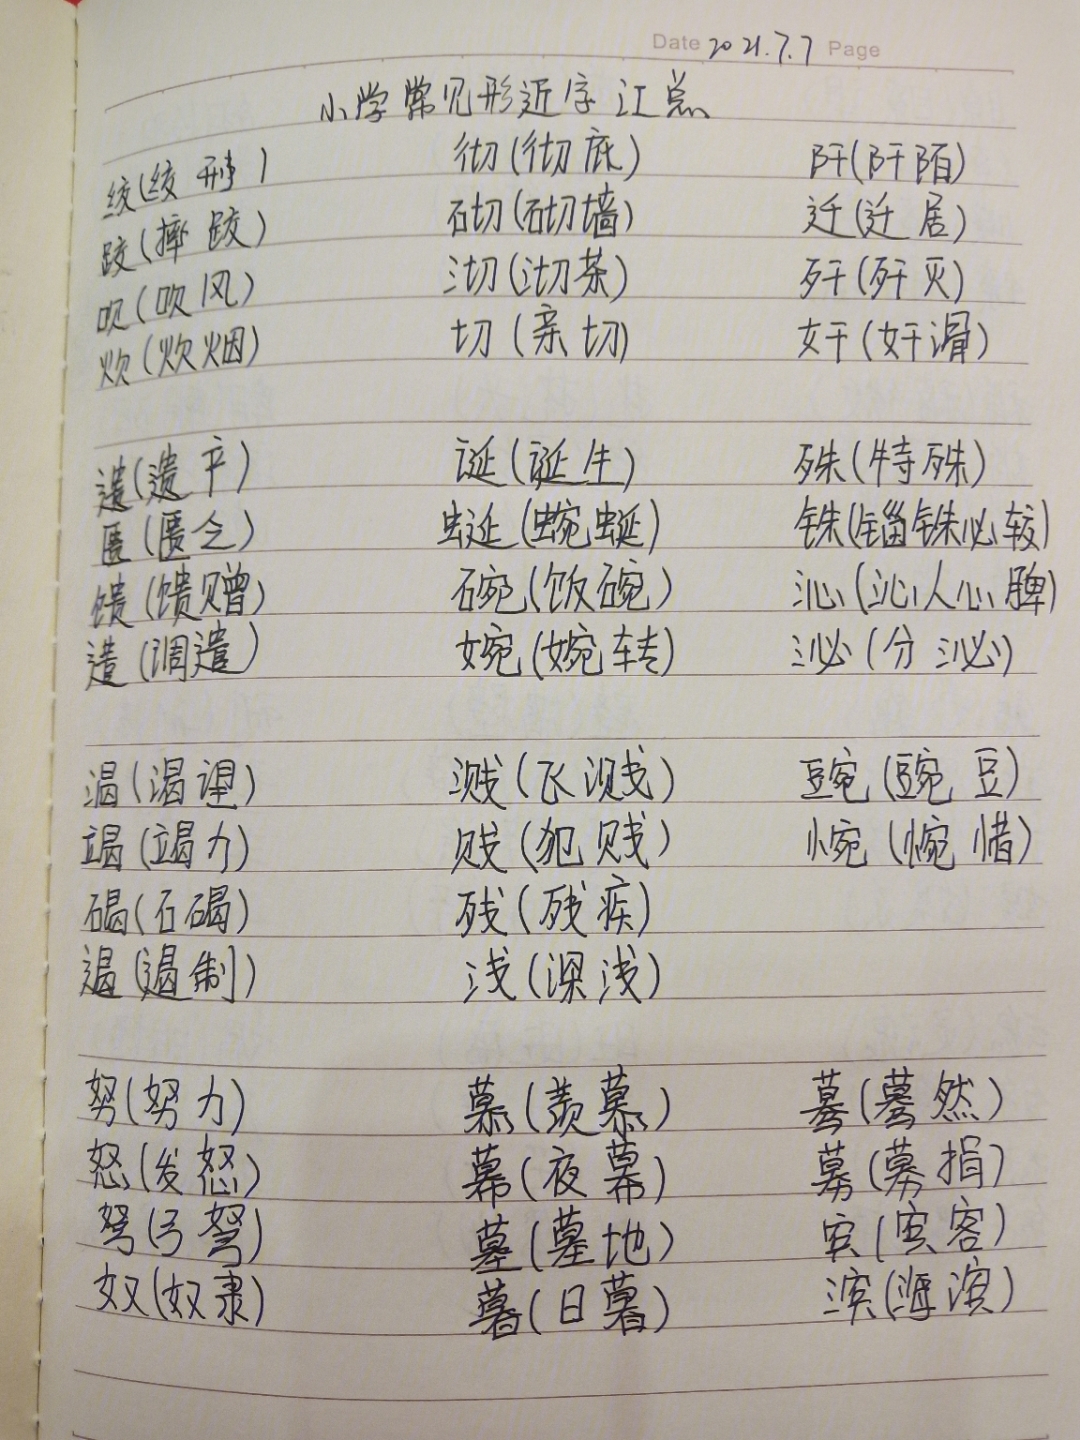 Date 2021.7.7 Page
小学常见形近字汇总
绞(绞刑) 彻(彻底) 阡(阡陌)
跤(摔跤) 砌(砌墙) 迁(迁居)
吹(吹风) 沏(沏茶) 歼(歼灭)
炊(炊烟) 切(亲切) 奸(奸滑)
遗(遗产) 诞(诞生) 殊(特殊)
匮(匮乏) 蜒(蜿蜒) 铢(锱铢必较)
馈(馈赠) 碗(饭碗) 沁(沁人心脾)
遣(调遣) 婉(婉转) 泌(分泌)
渴(渴望) 溅(飞溅) 豌(豌豆)
竭(竭力) 贱(犯贱) 惋(惋惜)
碣(石碣) 残(残疾)
遏(遏制) 浅(深浅)
努(努力) 慕(羡慕) 蓦(蓦然)
怒(发怒) 幕(夜幕) 募(募捐)
弩(弓弩) 墓(墓地) 宾(宾客)
奴(奴隶) 暮(日暮) 滨(海滨)